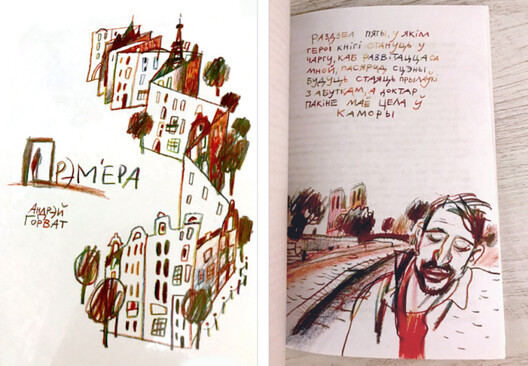 ПРЭМ'ЕРА
АНДРЭЙ
ГОРВАТ
РАЗДЗЕЛ ПЯТЫ, У ЯКІМ
ГЕРОІ КНІГІ СТАНУЦЬ У
ЧАРГУ, КАБ РАЗВІТАЦЦА СА
МНОЙ, ПАСЯРОД СЦЭНЫ
БУДУЦЬ СТАЯЦЬ ПРЫЛАЎКІ
З АБУТКАМ, А ДОКТАР
ПАКІНЕ МАЁ ЦЕЛА Ў
КАМОРЫ